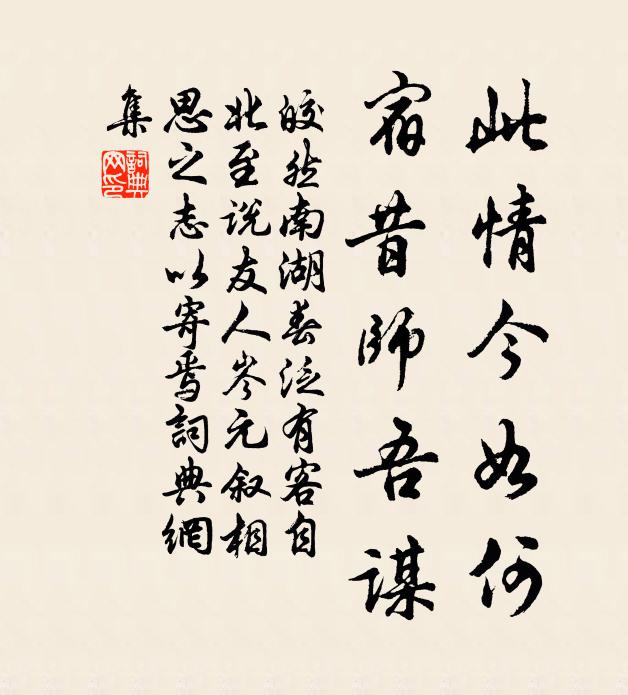 此情今如何
宿昔師吾謀
皎然南湖春泛有客自
北至说友人岑元叙相
思之志以寄焉詞典網
集
詞典
网印